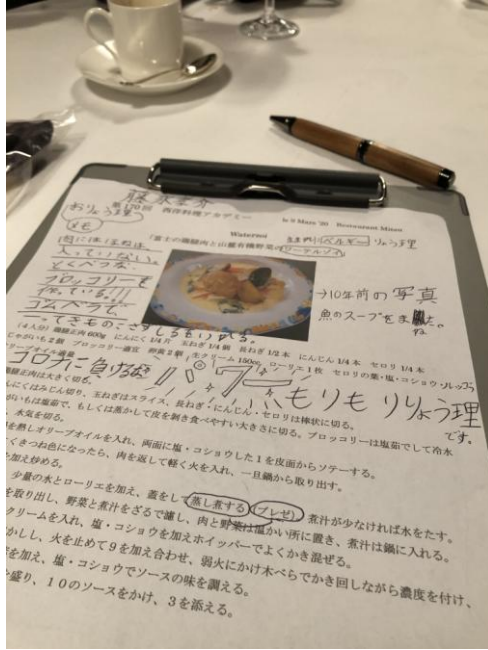 藤原奎介
第170回 西洋料理アカデミー
le 3 Mars '20 Restaurant Minow
おりょう理
メモ
Waterzoi
「富士の鶏腿肉と山麓有機野菜のワーテルゾイ」
ベルギーりょう理
肉にはほねは
入っていない。
とくべつな、
ブロッコリーを
作っている!!!
ゴムベラで
→10年前の写真
魚のスープをまねた。
(4人分) 鶏腿正肉 600g にんにく 1/4片 玉ねぎ 1/4個 長ねぎ 1/2本 にんじん 1/4本 セロリ 1/4本
じゃがいも2個 ブロッコリー適宜 卵黄2個 生クリーム 150cc ローリエ1枚 セロリの葉・塩・コショウ・
リーブオイル適量
コロナに負けるな パワーもりもりりょう理です。
鶏腿正肉は大きく切る。
にんにくはみじん切り、玉ねぎはスライス、長ねぎ・にんじん・セロリは棒状に切る。
がいもは茹でて、もしくは蒸かして皮を剥き食べやすい大きさに切る。ブロッコリーは塩茹でして冷水
、水気を切る。
を熱しオリーブオイルを入れ、両面に塩・コショウした1を皮面からソテーする。
くきつね色になったら、肉を返して軽く火を入れ、一旦鍋から取り出す。
加え炒める。
少量の水とローリエを加え、蓋をして蒸し煮する(ブレゼ)煮汁が少なければ水をたす。
を取り出し、野菜と煮汁をざるで濾し、肉と野菜は温かい所に置き、煮汁は鍋に入れる。
クリームを入れ、塩・コショウを加えホイッパーでよくかき混ぜる。
かし、火を止めて9を加え合わせ、弱火にかけ木べらでかき回しながら濃度を付け、
を加え、塩・コショウでソースの味を調える。
盛り、10のソースをかけ、3を添える。